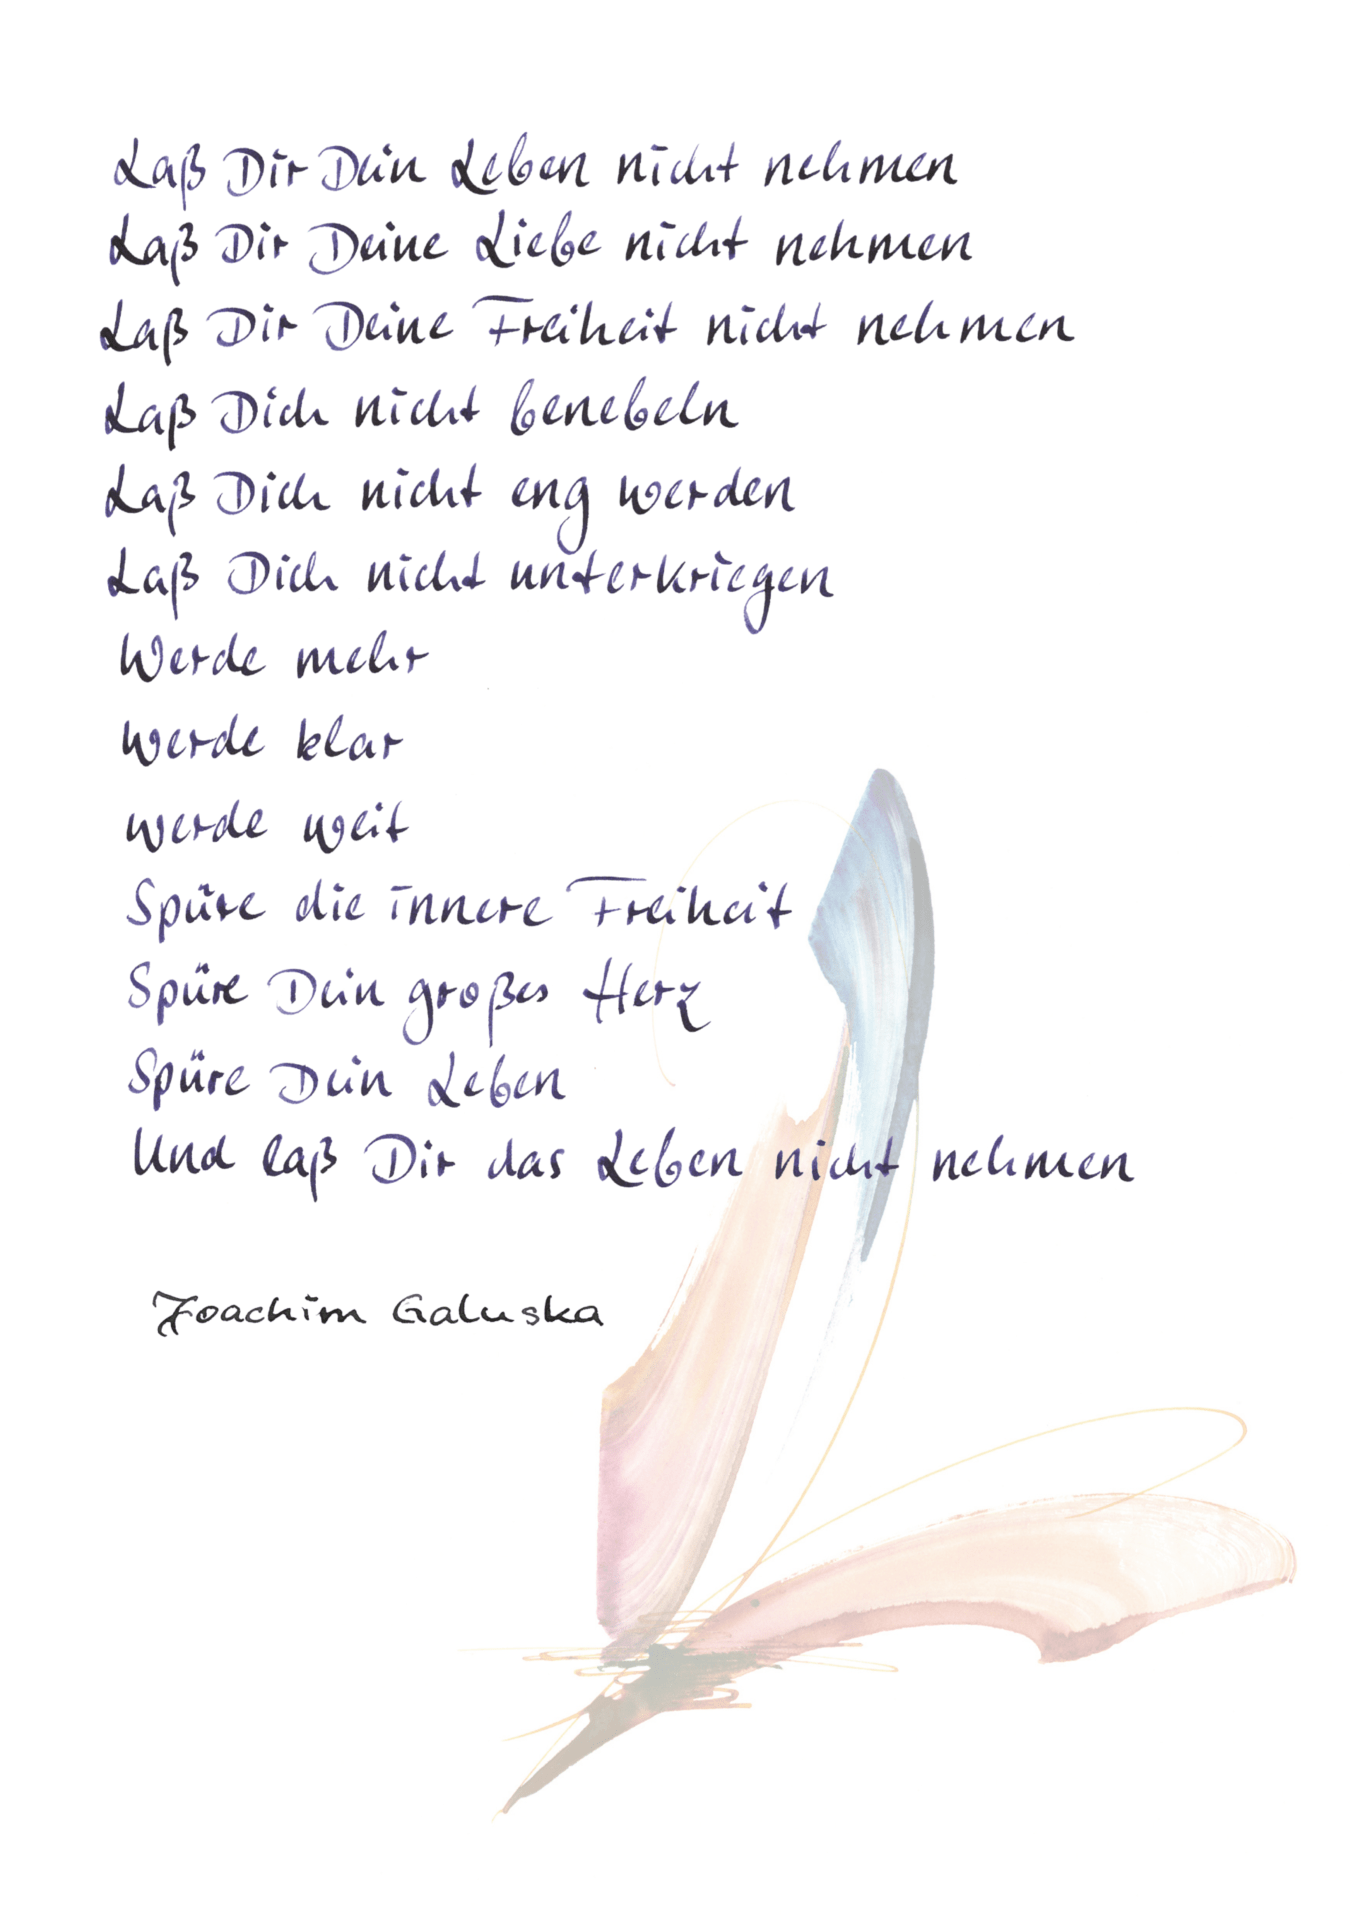 Laß Dir Dein Leben nicht nehmen
Laß Dir Deine Liebe nicht nehmen
Laß Dir Deine Freiheit nicht nehmen
Laß Dich nicht benebeln
Laß Dich nicht eng werden
Laß Dich nicht unterkriegen
Werde mehr
werde klar
werde weit
Spüre die innere Freiheit
Spüre Dein großes Herz
Spüre Dein Leben
Und laß Dir das Leben nicht nehmen
Joachim Galuska